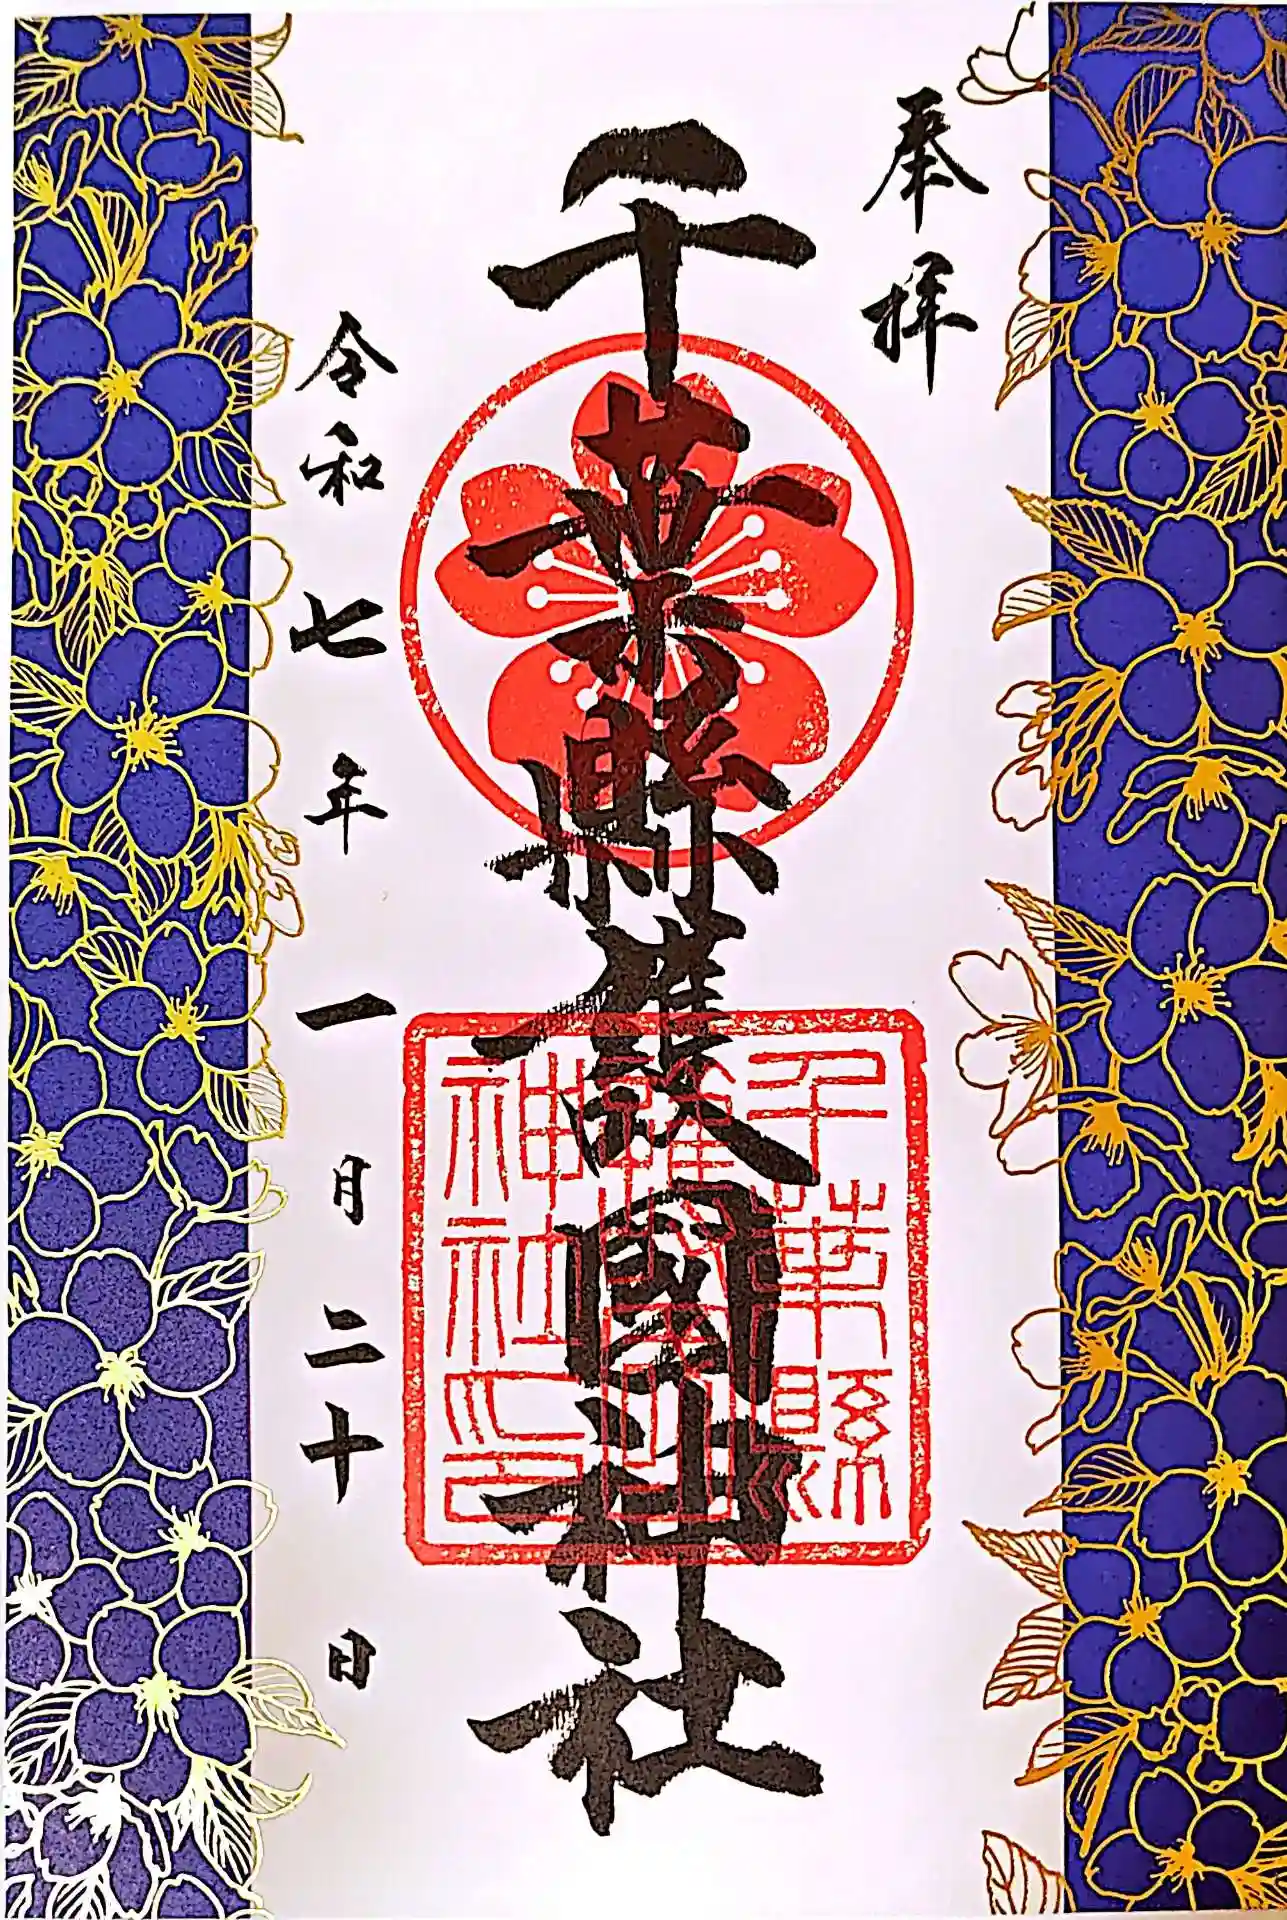 奉拝
千葉縣護國神社
千葉縣
護國
神社之印
令和七年一月二十日